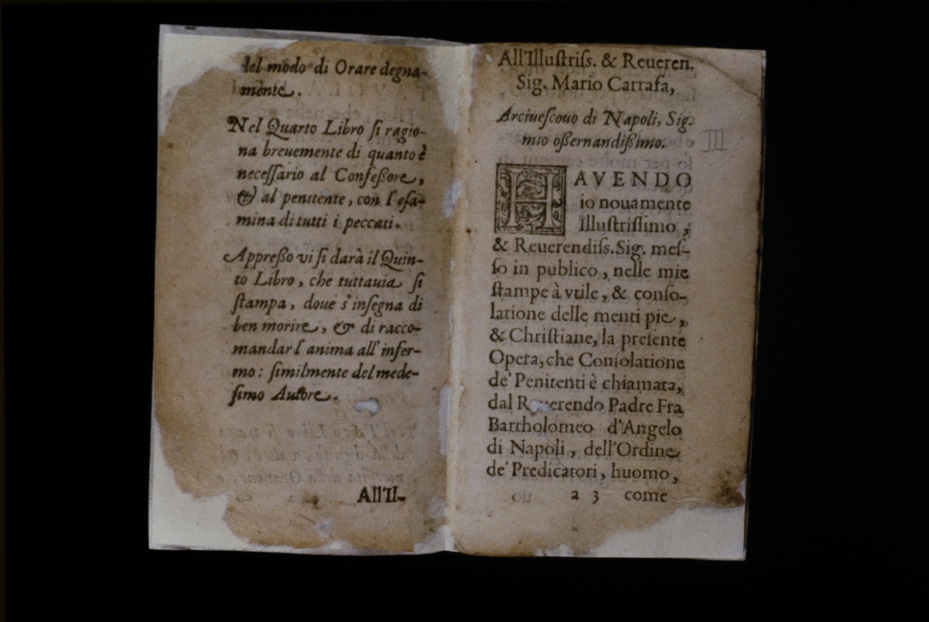 del modo di Orare degna-
mente.
Nel Quarto Libro si ragio-
na breuemente di quanto è
necessario al Confessore,
& al penitente, con l'esa-
mina di tutti i peccati.
Appresso vi si darà il Quin-
to Libro, che tuttauia si
stampa, doue s'insegna di
ben morire, & di racco-
mandar l'anima all'infer-
mo: similmente del mede-
simo Autore.
All'Il-
All'Illustriss. & Reueren.
Sig. Mario Carrafa,
Arciuescouo di Napoli, Sig.
mio osseruandissimo.
HAVENDO
io nouamente
Illustrissimo,
& Reuerendiss. Sig. mes-
so in publico, nelle mie
stampe à vtile, & conso-
latione delle menti pie,
& Christiane, la presente
Opera, che Consolatione
de' Penitenti è chiamata,
dal Reuerendo Padre Fra
Bartholomeo d'Angelo
di Napoli, dell'Ordine
de' Predicatori, huomo,
a 3 come